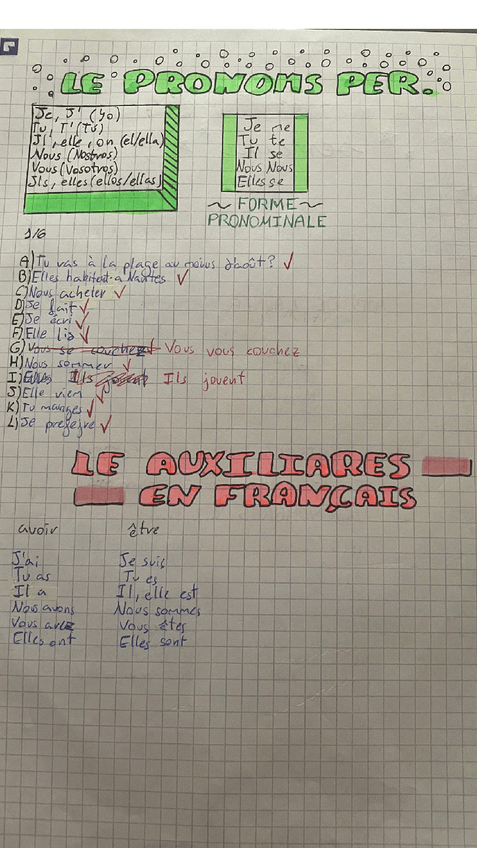 LE PRONOMS PER.
Je, J' (Yo)
Tu, T' (Tú)
Il, elle, on (el/ella)
Nous (Nostros)
Vous (Vosotros)
Ils, elles (ellos/ellas)
Je me
Tu te
Il se
Nous Nous
Elles se
~ FORME ~
PRONOMINALE
1/6
A) Tu vas à la plage au mois d'août? ✓
B) Elles habitent a Nantes ✓
C) Nous acheter ✓
D) Je fait ✓
E) Je écri ✓
F) Elle lis ✓
G) Vous se couchez Vous vous couchez
H) Nous sommer ✓
I) Ils jouent
J) Elle vien ✓
K) Tu manges ✓
L) Je prefejre ✓
LE AUXILIARES
EN FRANÇAIS
avoir être
J'ai Je suis
Tu as Tu es
Il a Il, elle est
Nous avons Nous sommes
Vous avez Vous êtes
Elles ont Elles sont